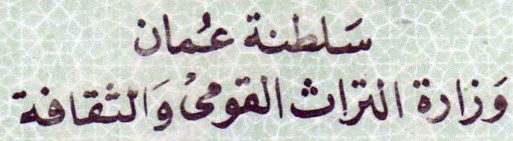 سَلطنة عُمان
وَزارة التراث القومي وَالثقافة